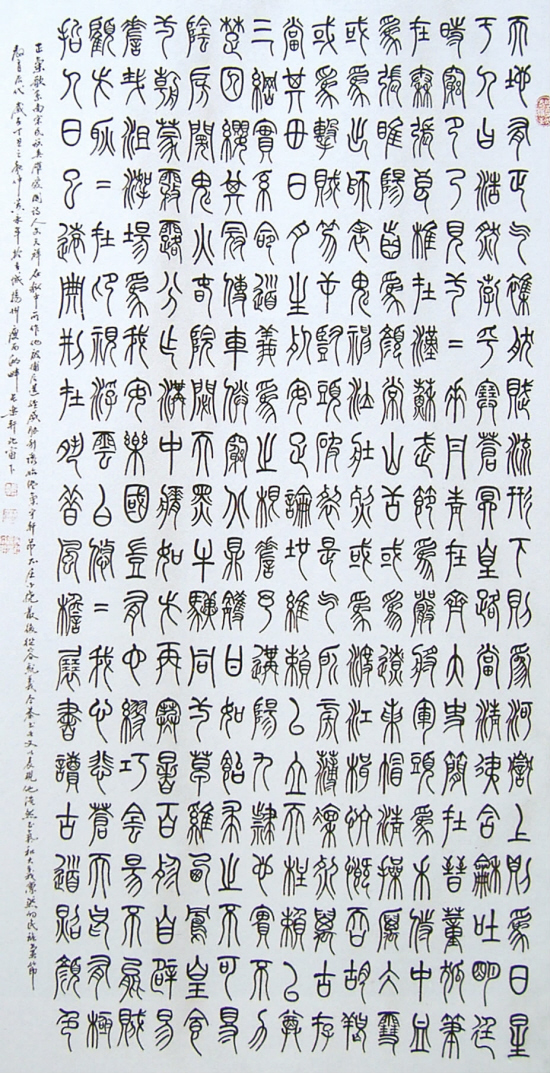 天地有正气雜然賦流形下則為河嶽上則為日星
于人曰浩然沛乎塞蒼冥皇路當清夷含龢吐明廷
時窮節乃見一=垂丹青在齊太史簡在晉董狐筆
在秦張良椎在漢蘇武節為嚴將軍頭為嵇侍中血
為張睢陽齒為顏常山舌或為遼東帽清操厲冰雪
或為出師表鬼神泣壯烈或為渡江楫慷慨吞胡羯
或為擊賊笏逆豎頭破裂是气所磅礴凜烈萬古存
當其毌日月生死安足論地維賴以立天柱賴以尊
三綱實系命道義為之根嗟予遘陽九隸也實不力
楚囚纓其冠傳車送窮北鼎鑊甘如飴求之不可得
陰房闃鬼火春院閟天黑牛驥同一皂雞棲鳳皇食
一朝蒙霧露分作溝中瘠如此再寒暑百沴自辟易
嗟哉沮洳場為我安樂國豈有他繆巧侌昜不能賊
顧此耿=在仰視浮雲白悠=我心悲蒼天曷有極
哲人日已遠典刑在夙昔風檐展書讀古道照顏色
正氣歌系南宋民族英雄愛國詩人文天祥在獄中所作他被囚後遭威脅利誘始終
最後從容就義今篆書此文以表現他浩然正氣和大義凜然的民族氣節